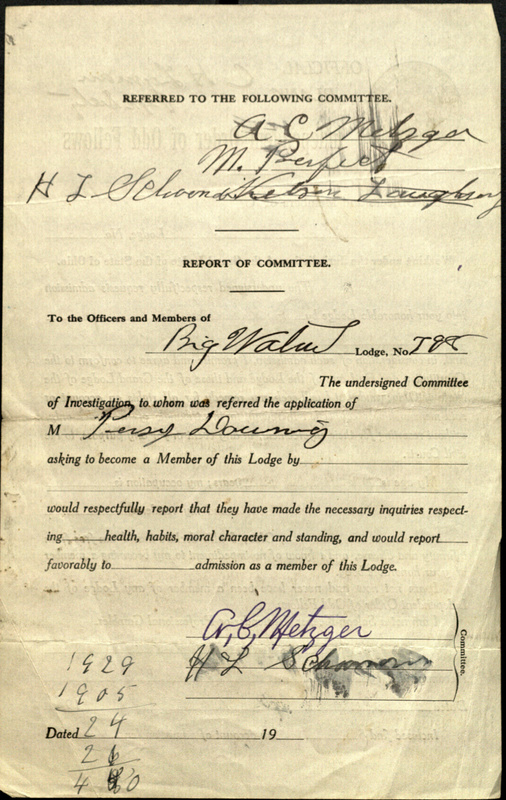 REFERRED TO THE FOLLOWING COMMITTEE.
A C Metzger
M. Perfect
H L
REPORT OF COMMITTEE.
To the Officers and Members of
Big Walnut Lodge, No.
The undersigned Committee
of Investigation, to whom was referred the application of
M Percy Downing
asking to become a Member of this Lodge by
would respectfully report that they have made the necessary inquiries respect-
ing health, habits, moral character and standing, and would report
favorably to admission as a member of this Lodge.
A, C, Metzger
H L
Committee.
1929
1905
24
Dated 19
26